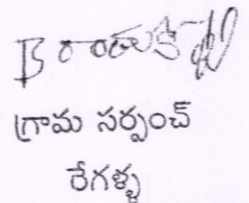 గ్రామ సర్పంచ్
రేగళ్ళ